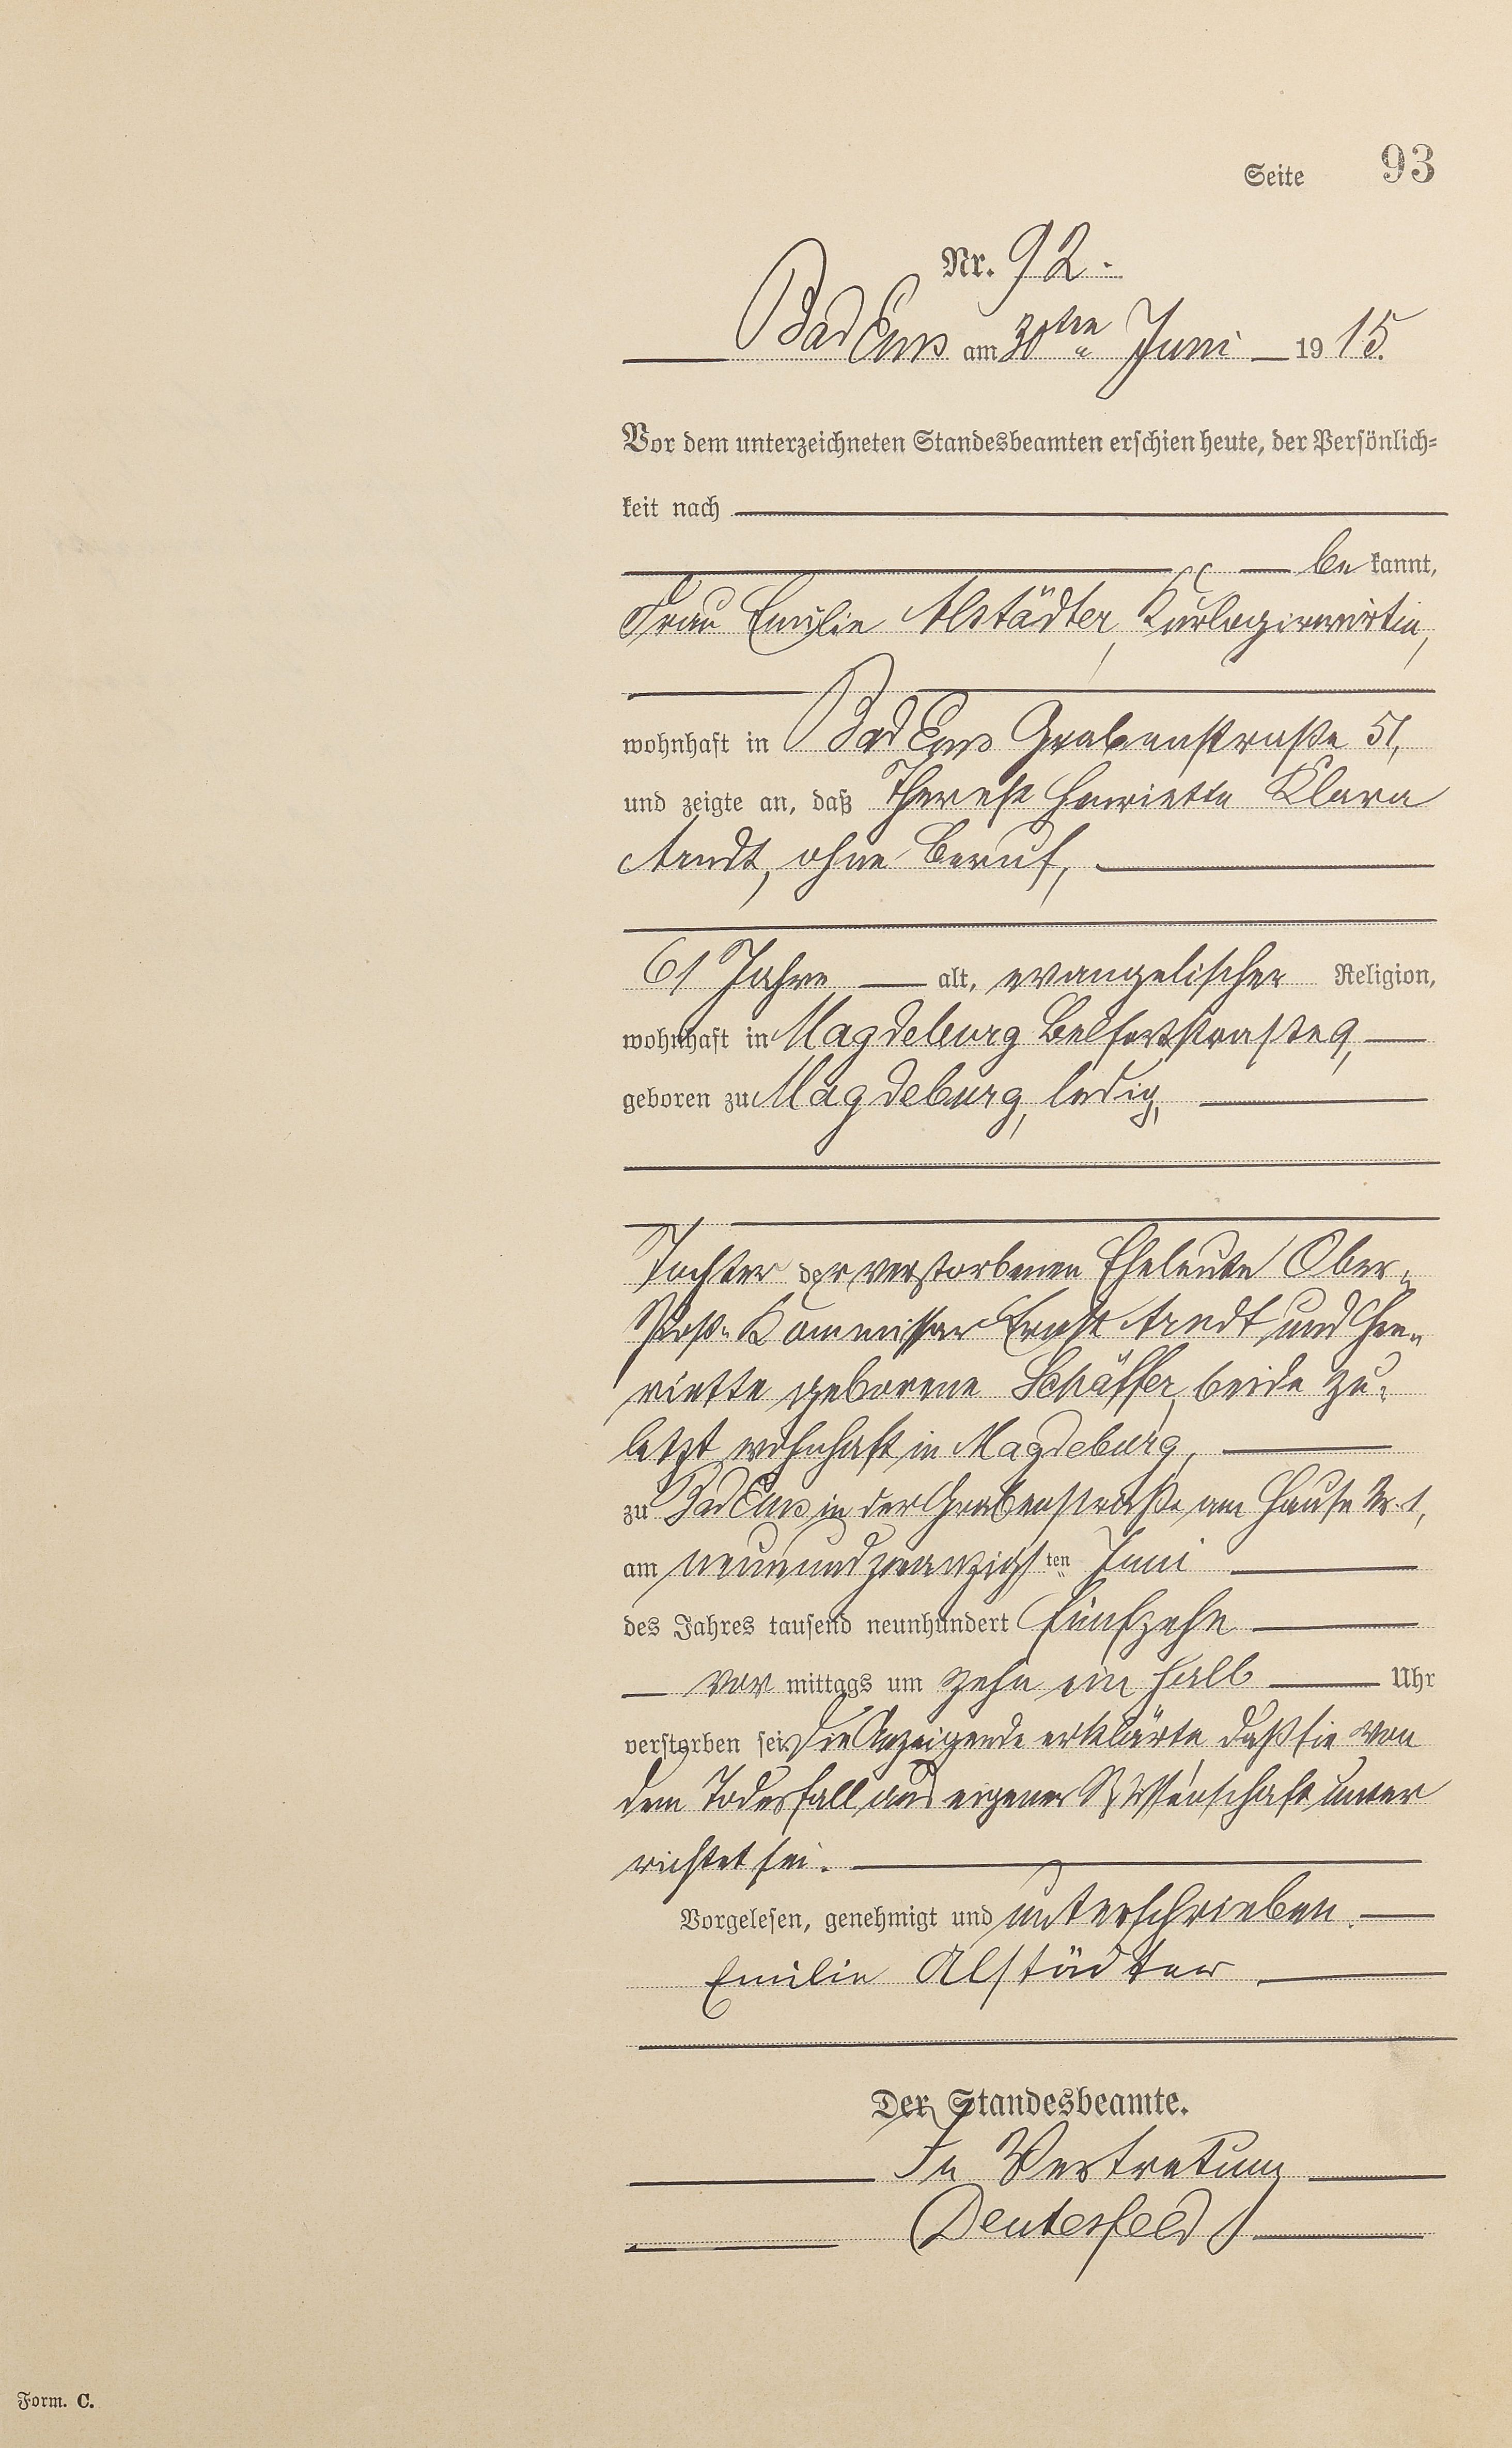 Seite 93
Nr. 92.
Bad Ems am 30ten Juni 1915.
Vor dem unterzeichneten Standesbeamten erschien heute, der Persönlich-
keit nach
be kannt,
Frau Emilie Alstädter, Kurlogirwirtin,
wohnhaft in Bad Ems Grabenstraße 51,
und zeigte an, daß Therese Henriette Klara
Arndt, ohne Beruf,
61 Jahre alt, evangelischer Religion,
wohnhaft in Magdeburg Belfortstraße 9,
geboren zu Magdeburg, ledig,
Tochter der verstorbenen Eheleute Ober-
Post-Kommissar Ernst Arndt und Hen-
riette geborene Schäffer, beide zu-
letzt wohnhaft in Magdeburg,
zu Bad Ems in der Grabenstraße am Hause Nr. 1,
am neunundzwanzigsten Juni
des Jahres tausend neunhundert fünfzehn
vor mittags um zehn ein halb Uhr
verstorben sei. Die Anzeigende erklärte daß sie von
dem Todesfall aus eigener Wissenschaft unter
richtet sei.
Vorgelesen, genehmigt und unterschrieben.
Emilie Alstädter
Der Standesbeamte.
In Vertretung
Deutesfeld
Form. C.